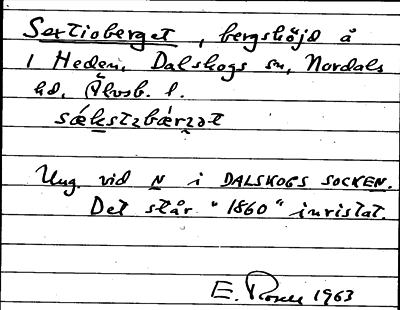 Sextioberget, bergshöjd å
1 Heden, Dalskogs sn, Nordals
hd, Älvsb. l.
sækstɩbærʒət
Ung. vid N i DALSKOGS SOCKEN.
Det står "1860" inristat.
E. 1963